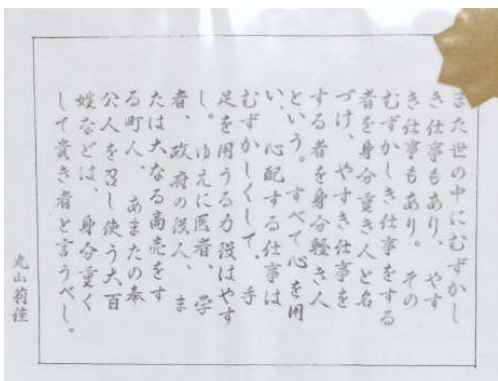 また世の中にむずかし
き仕事もあり、やす
き仕事もあり。その
むずかしき仕事をする
者を身分重き人と名
づけ、やすき仕事を
する者を身分軽き人
という。すべて心を用
い、心配する仕事は
むずかしくして、手
足を用うる力役はやす
し。ゆえに医者、学
者、政府の役人、ま
たは大なる商売をす
る町人、あまたの奉
公人を召し使う大百
姓などは、身分重く
して貴き者と言うべし。
丸山